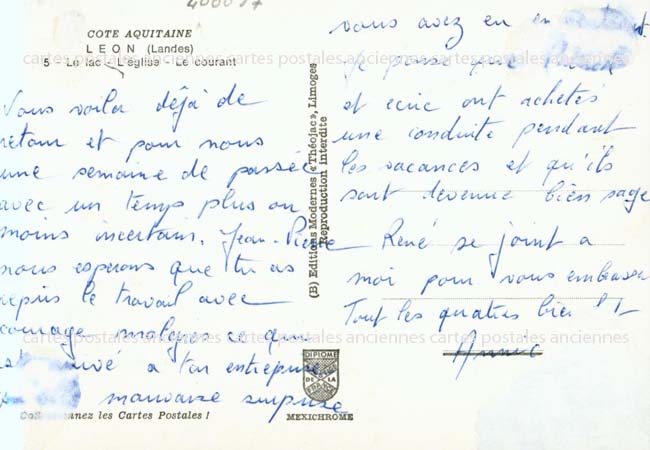 COTE AQUITAINE
LEON (Landes)
5 - Le lac - L'église - Le courant
Vous voila déjà de
retour et pour nous
une semaine de passée
avec un temps plus ou
moins incertain. Jean-Pierre
nous esperons que tu as
repris le travail avec
courage malgrés ce qui
arrivé a ton entreprise
mauvaise surprise
Collectionnez les Cartes Postales !
(B) Editions Modernes « Théojac », Limoges
Reproduction Interdite
DIPLOME
DE LA
FRANCE
MEXICHROME
vous avez eu en
Je pense que
et ecric ont achetés
une conduite pendant
les vacances et qu'ils
sont devenue bien sage
René se joint a
moi pour vous embrasser
Tout les quatres bien
Annie
cartes postales anciennes cartes postales anciennes cartes postales anciennes
cartes postales anciennes cartes postales anciennes cartes postales anciennes